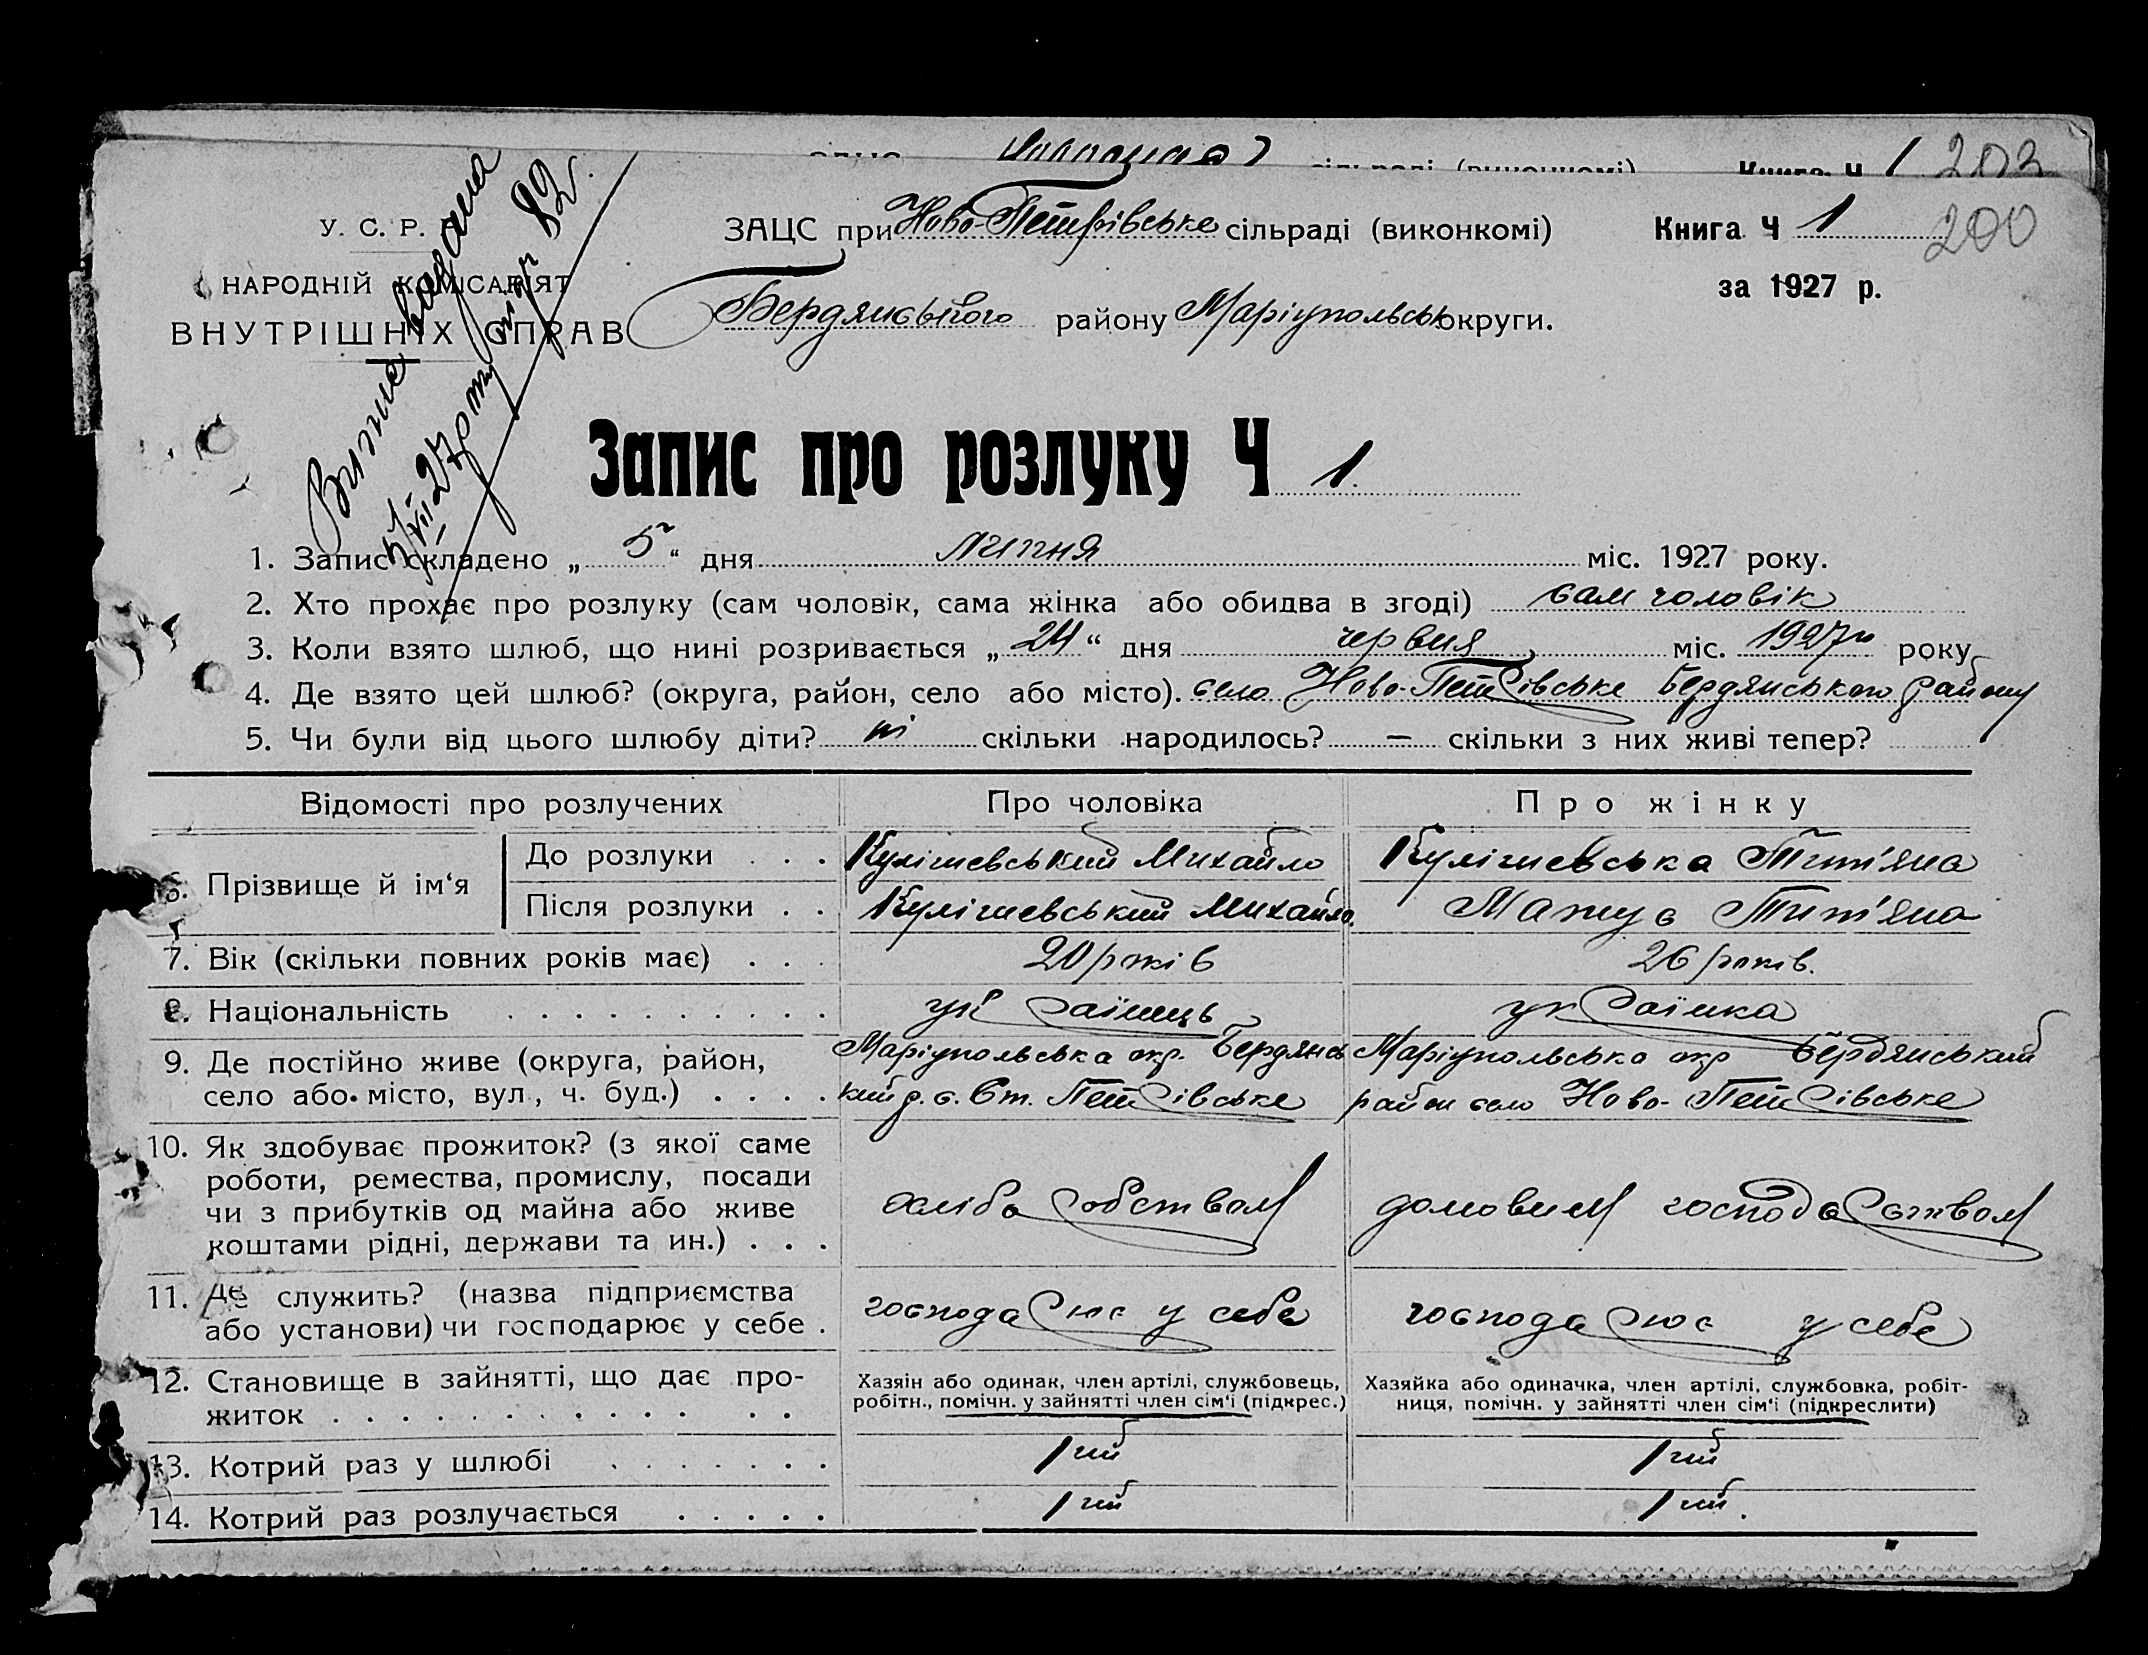 203
У. С. Р. Р.
ЗАЦС при Ново-Петрівське сільраді (виконкомі)
Книга Ч 1
200
НАРОДНІЙ КОМІСАРІЯТ
за 1927 р.
ВНУТРІШНІХ СПРАВ
Бердянського району Маріупольськ округи.
Витис видана
5/VII 27р 82
Запис про розлуку Ч 1.
1. Запис складено „ 5 “ дня липня міс. 1927 року.
2. Хто прохає про розлуку (сам чоловік, сама жінка або обидва в згоді) сам чоловік
3. Коли взято шлюб, що нині розривається „ 24 “ дня червня міс. 1927 року
4. Де взято цей шлюб? (округа, район, село або місто). село Ново-Петрівське Бердянського району
5. Чи були від цього шлюбу діти? ні скільки народилось? — скільки з них живі тепер?
Відомості про розлучених Про чоловіка Про жінку
6. Прізвище й ім‘я
До розлуки . . . Кулішевський Михайло Кулішевська Тит'яна
Після розлуки . . Кулішевський Михайло. Тит'яна
7. Вік (скільки повних років має) . . . 20 років 26 років.
8. Національність . . . . . . . . . . українець українка
9. Де постійно живе (округа, район, Маріупольська окр. Бердянсь Маріупольська окр Бердянський
село або місто, вул., ч. буд.) . . . . кий р. с. Ст. Петрівське район село Ново-Петрівське
10. Як здобуває прожиток? (з якої саме
роботи, ремества, промислу, посади
чи з прибутків од майна або живе хлібробством домовим господарством
коштами рідні, держави та ин.) . . .
11. Де служить? (назва підприємства господарює у себе господарює у себе
або установи) чи господарює у себе .
12. Становище в зайнятті, що дає про- Хазяїн або одинак, член артілі, службовець, Хазяйка або одиначка, член артілі, службовка, робіт-
житок . . . . . . . . . . . . . робітн., помічн. у зайнятті член сім‘ї (підкрес.) ниця, помічн. у зайнятті член сім‘ї (підкреслити)
13. Котрий раз у шлюбі . . . . . . . 1ий 1ий
14. Котрий раз розлучається . . . . . 1ий 1ий.